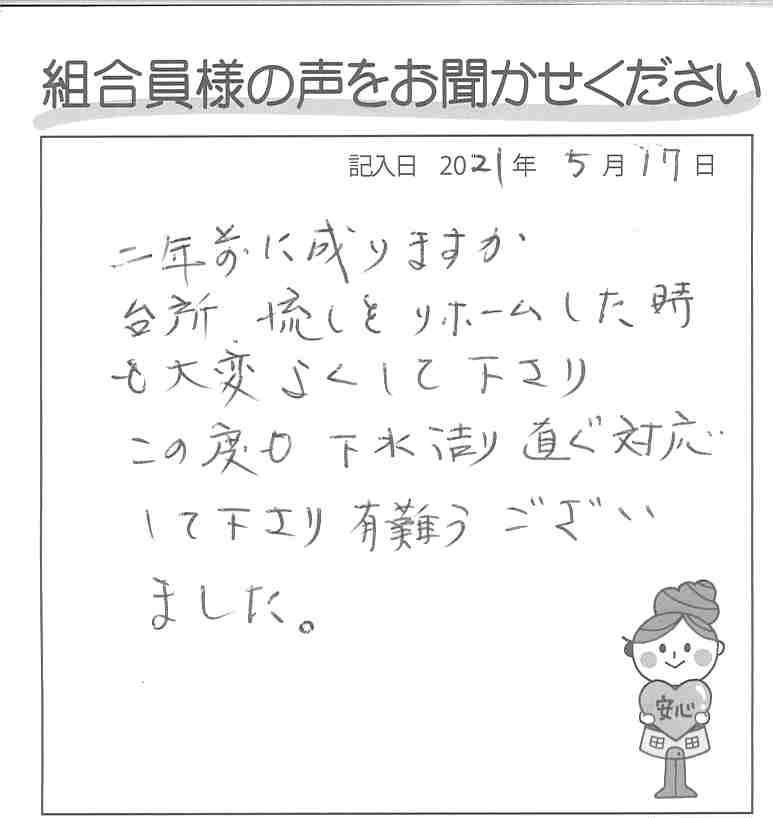 組合員様の声をお聞かせください
記入日 2021年 5月17日
二年前に成りますが
台所 流しをリホームした時
も大変よくして下さり
この度も 下水詰り 直ぐ対応
して下さり 有難うござい
ました。
安心